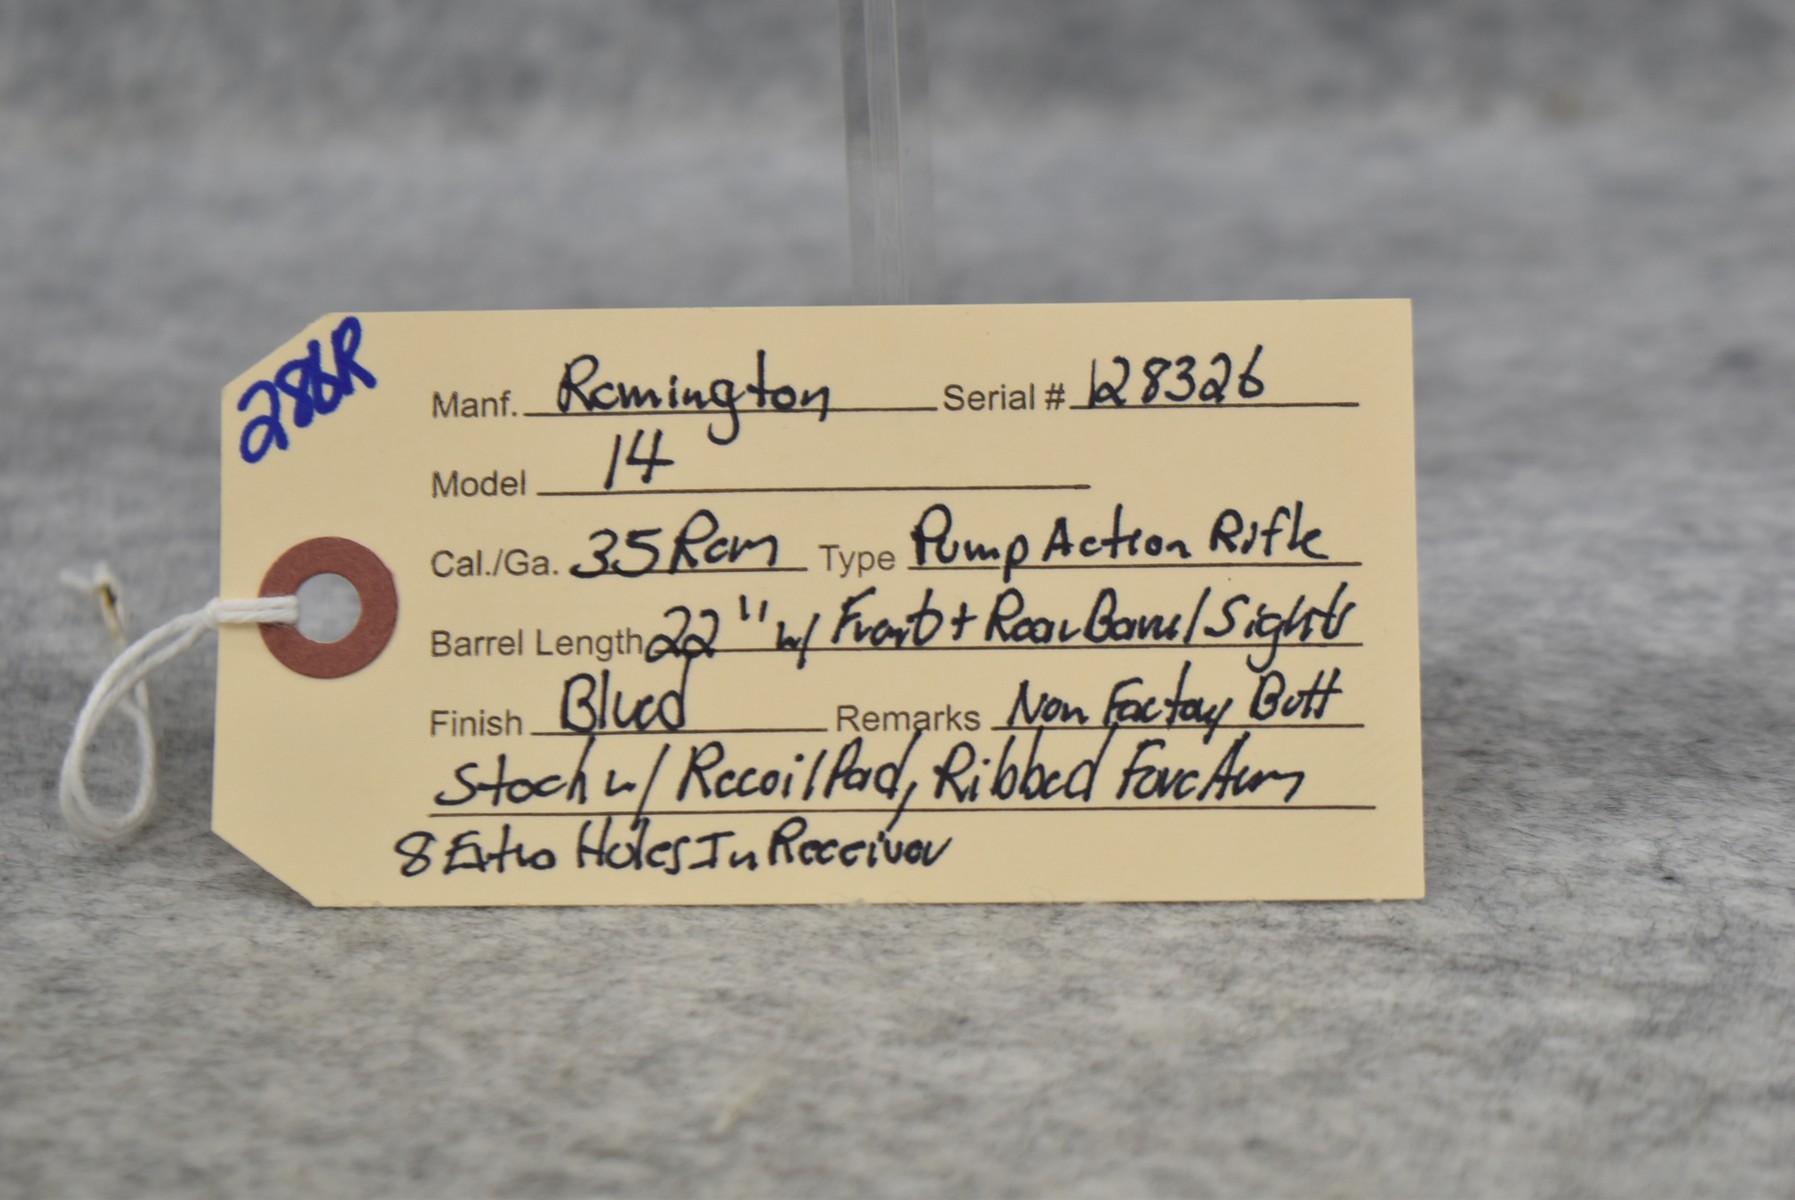 286R
Manf. Remington Serial # 128326
Model 14
Cal./Ga. 35 Rem Type Pump Action Rifle
Barrel Length 22" w/ Front + Rear Barrel Sights
Finish Blued Remarks Non Factory Butt
Stock w/ Recoil Pad, Ribbed ForeArm
8 Extra Holes In Receiver